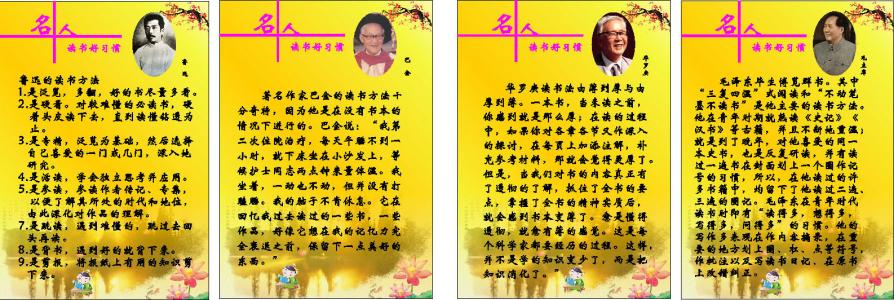 名人
读书好习惯
鲁迅
鲁迅的读书方法
1.是泛览，多翻，好的书尽量多看。
2.是硬看。对较难懂的必读书，硬
着头皮读下去，直到读懂钻透为
止。
3.是专精，泛览为基础，然后选择
自己喜爱的一门或几门，深入地
研究。
4.是活读，学会独立思考并应用。
5.是参读，参读作者传记、专集，
以便了解其所处的时代和地位，
由此深化对作品的理解。
7.是跳读，遇到难懂的，跳过去回
头再读。
8.是背书，遇到好的就背下来。
9.是剪报，将报纸上有用的知识剪
下来。
名人
读书好习惯
巴金
著名作家巴金的读书方法十
分奇特，因为他是在没有书本的
情况下进行的。巴金说：“我第
二次住院治疗，每天午睡不到一
小时，就下床坐在小沙发上，等
候护士同志两点钟来量体温。我
坐着，一动也不动，但并没有打
瞌睡。我的脑子不肯休息。它在
回忆我过去读过的一些书，一些
作品，好像它想在我的记忆力完
全衰退之前，保留下一点美好的
东西。”
名人
读书好习惯
华罗庚
华罗庚读书法由薄到厚与由
厚到薄。一本书，当未读之前，
你感到就是那么厚；在读的过程
中，如果你对各章各节又作深入
的探讨，在每页上加添注解，补
充参考材料，那就会觉得更厚了。
但是，当我们对书的内容真正有
了透彻的了解，抓住了全书的要
点，掌握了全书的精神实质后，
就会感到书本变薄了。愈是懂得
透彻，就愈有薄的感觉。这是每
个科学家都要经历的过程。这样，
并不是学的知识变少了，而是把
知识消化了。”
名人
读书好习惯
毛主席
毛泽东毕生博览群书。其中
“三复四温”式阅读和“不动笔
墨不读书”是他主要的读书方法。
他在青年对期就熟读《史记》《
汉书》等古籍，并且不断地重温；
就是到了晚年，对他喜爱的同一
本史书，也是反复研读，并有读
过一遍书在封面划上一个圈作记
号的习惯，所以，在他读过的许
多书籍中，均留下了他读过二遍、
三遍的圈记。毛泽东在青年时代
读书对即有“读得多，想得多，
写得多，问得多”的习惯。他的
写作多表现在作内容摘录，在重
要的地方划上圈、杠、点等符号，
作批注以及写读书日记、在原书
上改错纠正。